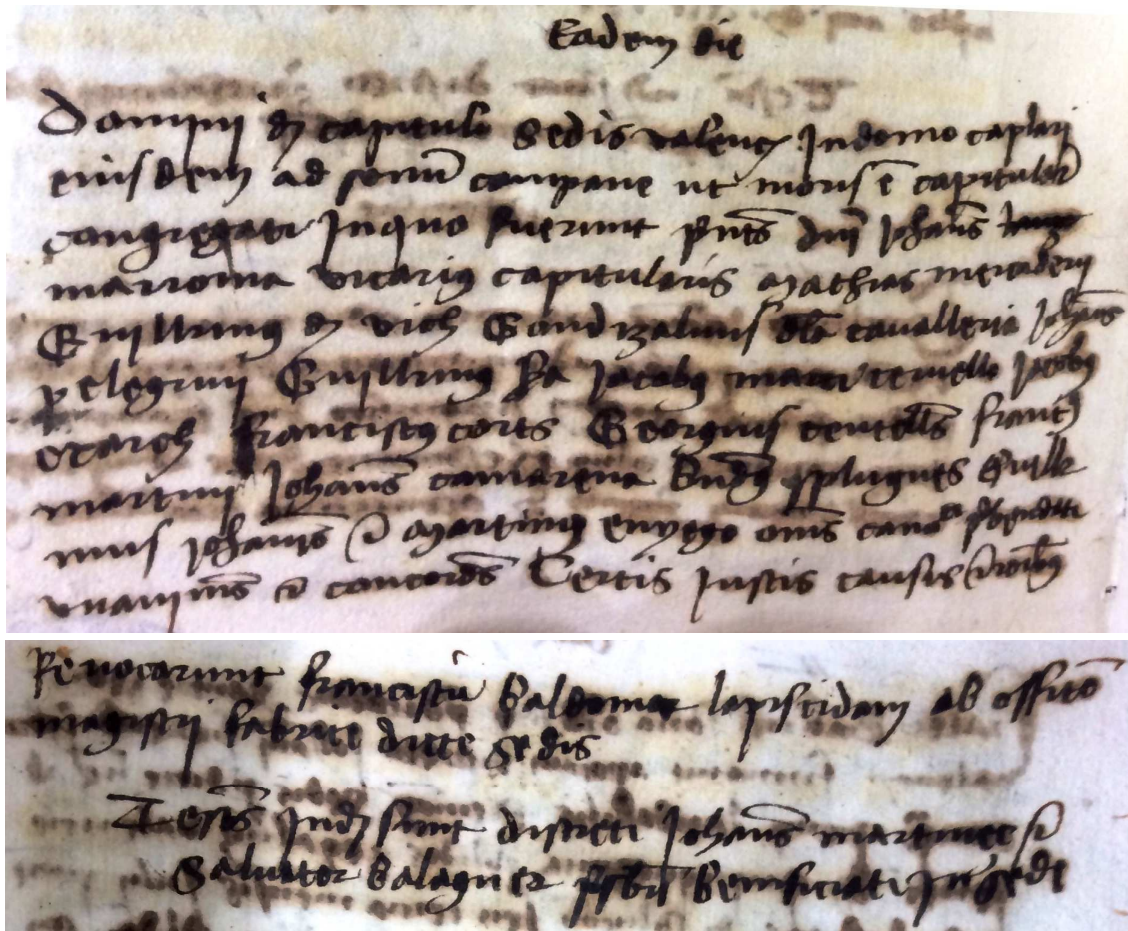 Eadem die
Domini de capitulo Sedis valen̄ In domo caplari
eiusdem ad sonū campane ut moris ē capitularr̄
congregati In quo fuerunt pñts dnī Johañs
marroma vicarius capitularis Mathias mercaderii
Guillermus de vich Gondizalvus cavalleria Johañs
pelegrini Guillmus Jacobus teruello Jacobus
exarch Franciscus corts Georgius centells franc
martini Johañs camarena splugues Guille
mus Johañis et Martinus enyego oms cano
unanimis et concords Certis Justis causis
Revocarunt franciscū baldomar lapiscidam ab officō
magistri fabrice dicte Sedis
Testes Inde sunt discreti Johañs martinez et
Salvator balaguer psbrī benificiati In Sede